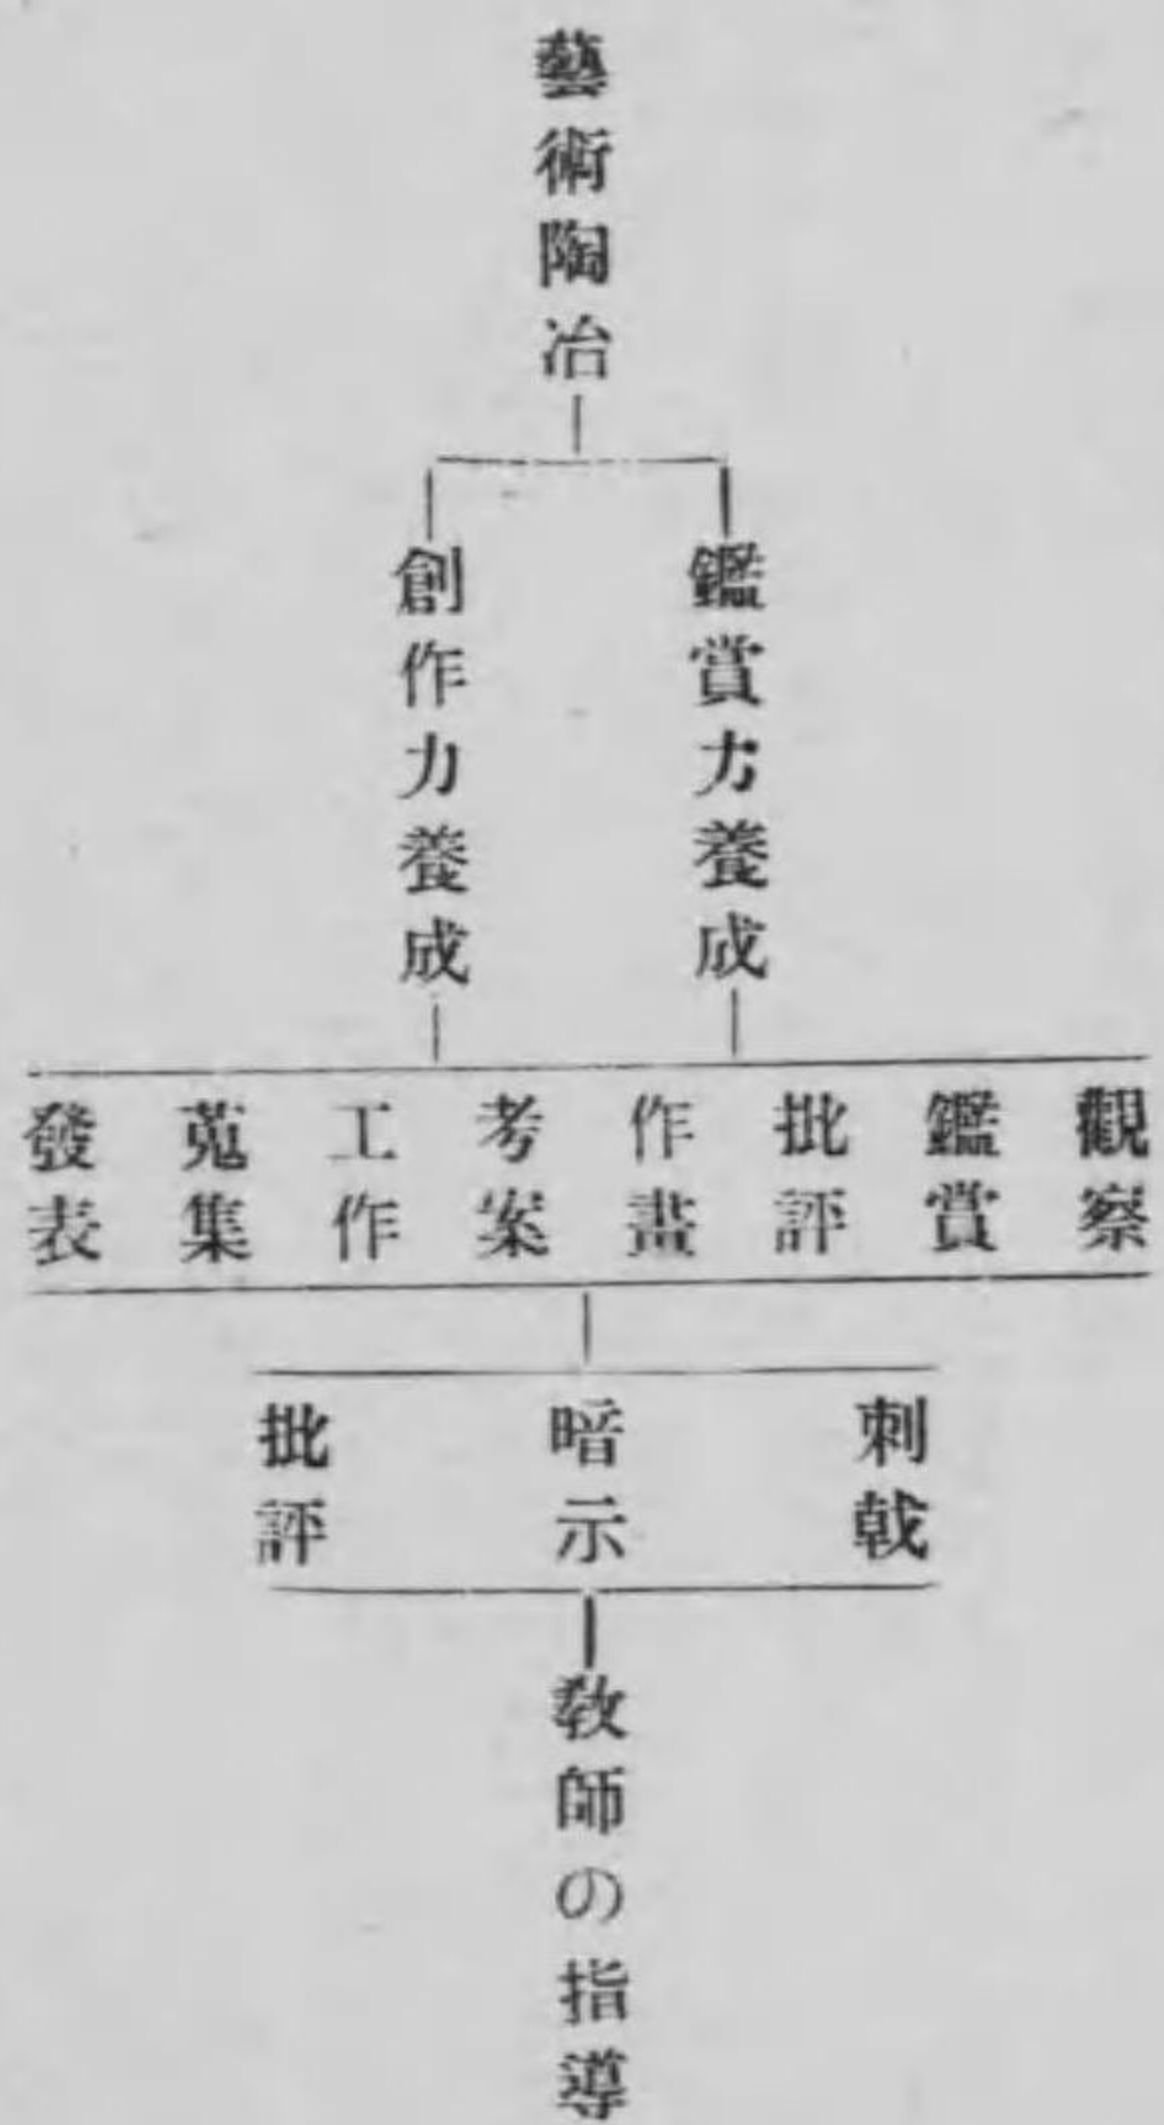 藝術陶冶
鑑賞力養成
創作力養成
觀察
鑑賞
批評
作畫
考案
工作
蒐集
發表
刺戟
暗示
批評
教師の指導